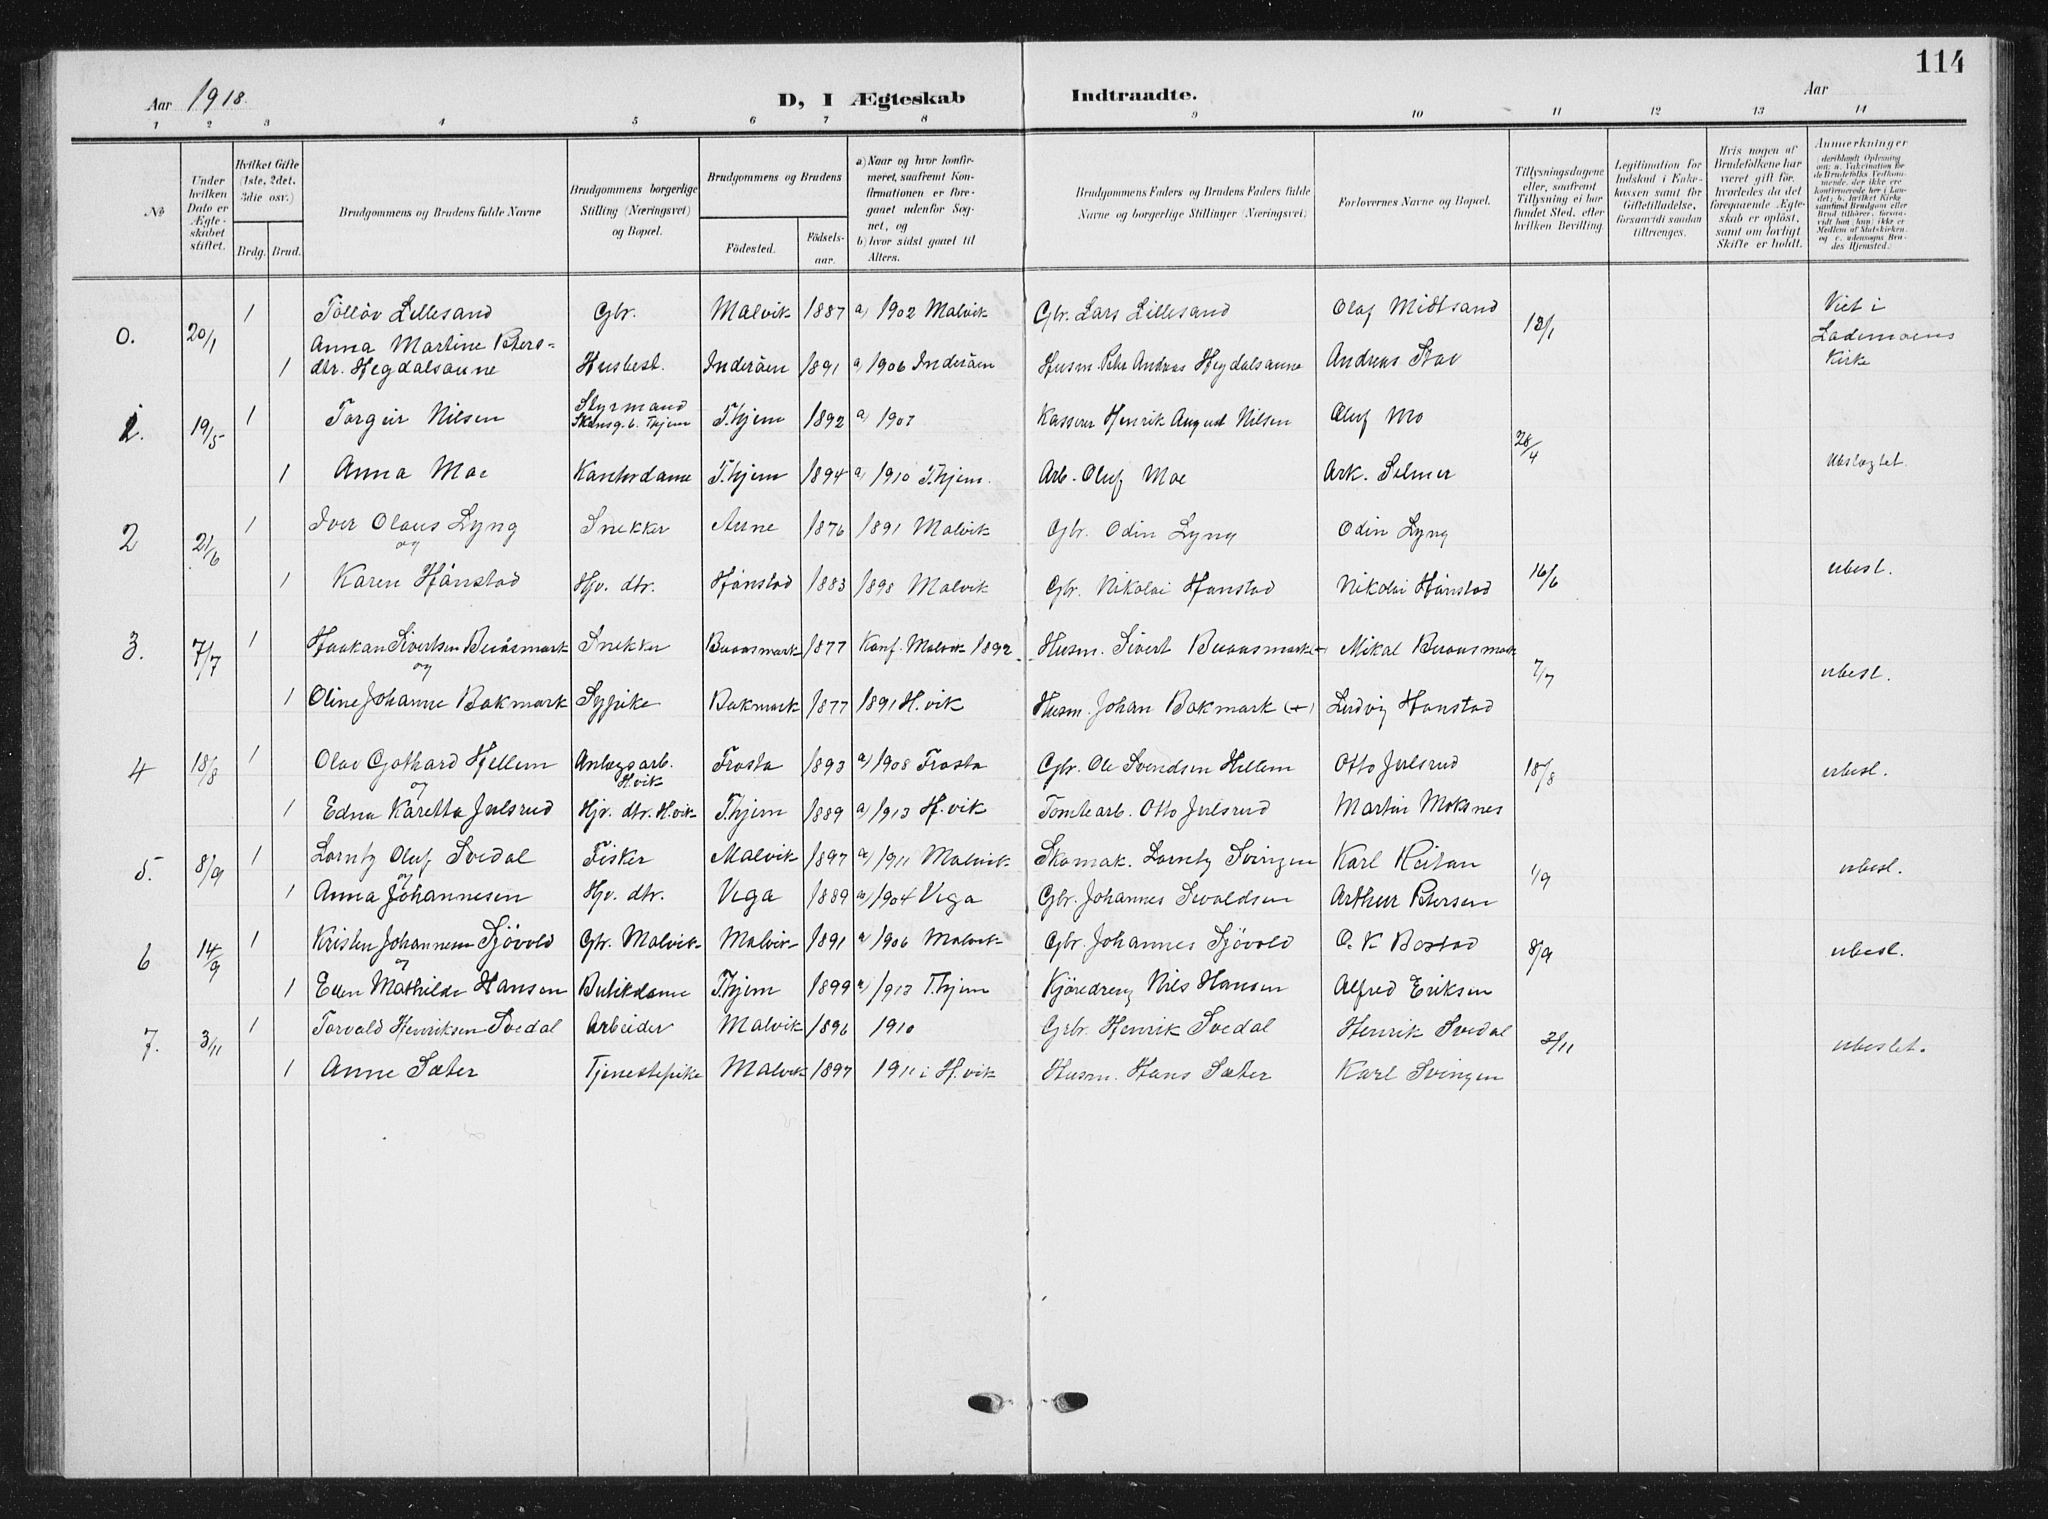 114
Aar 1918.
D, I Ægteskab Indtraadte.
Aar
1 2 3 4 5 6 7 8 9 10 11 12 13 14
No
Under hvilken Dato er Ægteskabet stiftet.
Hvilket Gifte (1ste, 2det, 3die osv.)
Brdg. Brud.
Brudgommens og Brudens fulde Navne
Brudgommens borgerlige Stilling (Næringsvei) og Bopæl.
Brudgommens og Brudens
Födested.
Födselsaar.
a) Naar og hvor konfirmeret, saafremt Konfirmationen er foregaaet udenfor Sognet, og
b) hvor sidst gaaet til Alters.
Brudgommens Faders og Brudens Faders fulde Navne og borgerlige Stillinger (Næringsvei)
Forlovernes Navne og Bopæl.
Tillysningsdagene eller, saafremt Tillysning ei har fundet Sted, efter hvilken Bevilling.
Legitimation for Indskud i Enkekassen samt for Giftetilladelse, forsaavidt saadan tiltrænges.
Hvis nogen af Brudefolkene har været gift för, hvorledes da det foregaaende Ægteskab er oplöst, samt om lovligt Skifte er holdt.
Anmærkninger
0. 20/1 1 Tollöv Lillesand Gbr. Malvik 1887 a) 1902 Malvik Gbr. Lars Lillesand Olaf Midtsand 13/1 Viet i Lademoens Kirke
Anna Martine Peters-
1 dtr. Hegdalsaune Husbest. Inderöen 1891 a) 1906 Inderöen Husm. Peter Andreas Hegdalsaune Andreas Stav
1. 19/5 1 Torgeir Nilsen Styrmand T.hjem 1892 a) 1907 Kasserer Henrik August Nilsen Oluf Mo 28/4
1 Anna Moe Kontordame T.hjem 1894 a) 1910 T.hjem. Arb. Oluf Moe Ark. Selmer Ubslægtet.
2 21/6 1 Iver Olaus Lyng Snekker Aune 1876 1891 Malvik Gbr. Odin Lyng Odin Lyng
og
1 Karen Hönstad Hjv. dtr. Hönstad 1883 1898 Malvik Gbr. Nikolai Hönstad Nikolai Hönstad 16/6 ubesl.
3. 7/7 1 Haakan Sivertsen Buaasmark Snekker Buaasmark 1877 Konf. Malvik 1892 Husm. Sivert Buaasmark + Mikal Buaasmark 7/7 ubesl.
og
1 Oline Johanne Bakmark Sypike Bakmark 1877 1891 H.vik Husm. Johan Bakmark (+) Ludvig Hönstad
4 18/8 1 Olav Gothard Hjellem Anlegsarb. H.vik Frosta 1893 a) 1908 Frosta Gbr. Ole Svendsen Hellem Otto Julsrud 18/8 ubesl.
og
1 Edna Karetta Julsrud Hjv. dtr. H.vik T.hjem 1889 a) 1913 H.vik Tomtearb. Otto Julsrud Martin Moksnes
5. 8/9 1 Lorntz Oluf Svedal Fisker Malvik 1897 a) 1911 Malvik Skomak. Lorntz Svingen Karl Reitan 1/9 ubesl.
og
1 Anna Johannesen Hjv. dtr. Vega 1889 a) 1904 Vega Gbr. Johannes Sivaldsen Arthur Petersen
6 14/9 1 Kristen Johannesen Sjövold Gbr. Malvik Malvik 1891 a) 1906 Malvik Gbr. Johannes Sjövold O. K Bostad 8/9 ubesl.
og
1 Ellen Mathilde Hansen Butikdame T.hjem 1899 a) 1913 T.hjem Kjöredreng Nils Hansen Alfred Eriksen
7. 3/11 1 Torvald Henriksen Svedal Arbeider Malvik 1896 1910 Grbr. Henrik Svedal Henrik Svedal 3/11 ubeslet.
1 Anne Sæter Tjenestepike Malvik 1897 1911 i H.vik Husm. Hans Sæter Karl Svingen